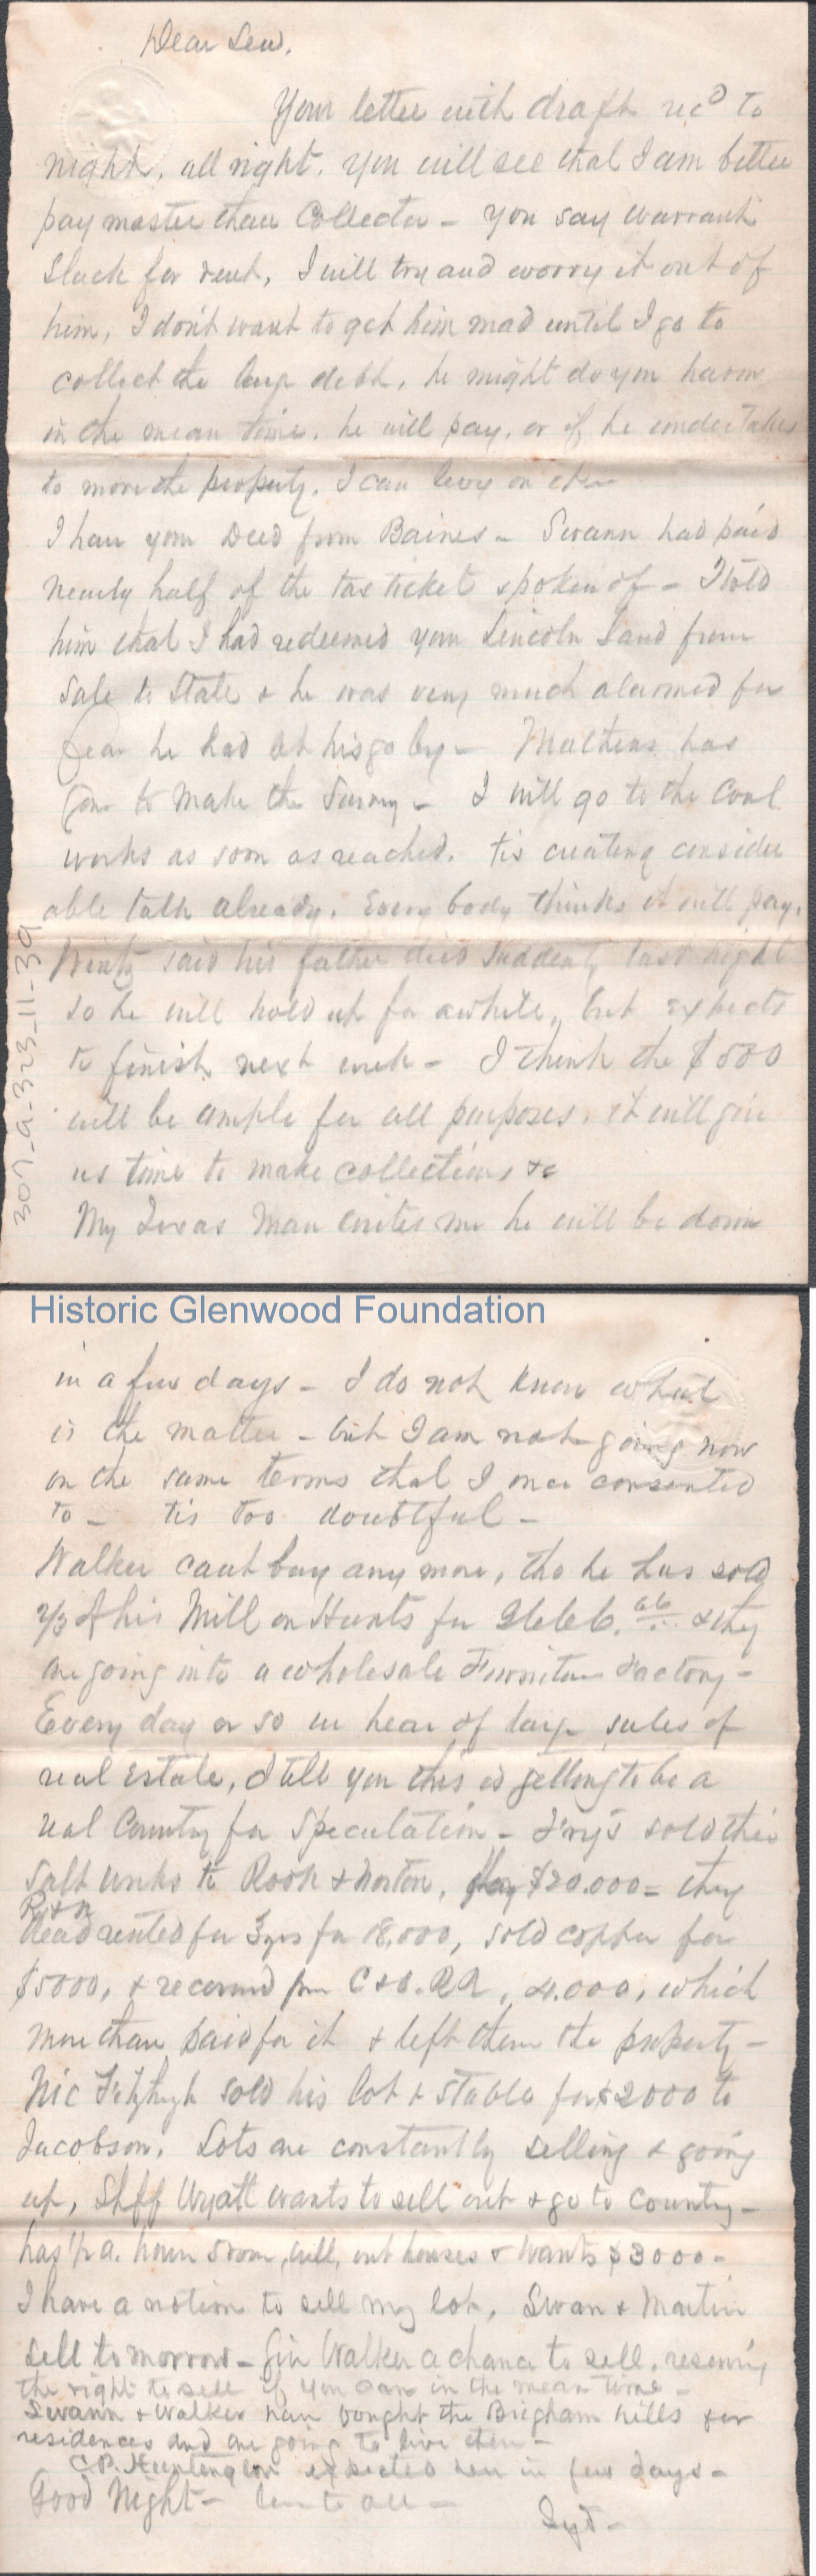 Dear Lew,
Your letter with draft rec'd to
night, all right. You will see that I am better
pay master than Collector - You say warrant
Slack for rent, I will try and worry it out of
him, I don't want to get him mad until I go to
collect the large debt, he might do you harm
in the mean time. he will pay, or if he undertakes
to move the property. I can levy on
I have your Deed from Baines - Swann had paid
nearly half of the tax ticket spoken of - I told
him that I had redeemed your Lincoln Land from
Sale to State & he was very much alarmed for
fear he had let his go by - Mathews has
gone to make the Survey - I will go to the Coal
works as soon as reached. tis creating consider
able talk already. Every body thinks it will pay.
Wentz said his father died suddenly last night
so he will hold up for awhile, but expects
to finish next week - I think the $500
will be ample for all purposes. it will give
us time to make collections &c
My Texas Man writes me he will be down
307-9-323-11-39
Historic Glenwood Foundation
in a few days - I do not know what
is the matter - but I am not going now
on the same terms that I once consented
to - tis too doubtful -
Walker cant buy any more, tho he has sold
2/3 of his Mill on Hunts for & they
are going into a wholesale Furniture Factory -
Every day or so we hear of large sales of
real Estate, I tell you this is getting to be a
real Country for Speculation - Fry's sold their
Salt works to Rook & Norton, $20.000 = they
R & N
Head rented for 3 yrs for 18,000, sold copper for
$5000, & received from C & O. RR, 4.000, which
more than paid for it & left them the property -
Nic Fitzhugh sold his lot & stable for $2000 to
Jacobson. Lots are constantly selling & going
up, Shff Wyatt wants to sell out & go to Country -
has 1/2 a. house 5 room, well, out houses & wants $3000 -
I have a notion to sell my lot, Swan & Martin
sell tomorrow - Give Walker a chance to sell, reserving
the right to sell if you can in the mean time -
Swann & Walker have bought the Brigham hills for
residences and are going to live there -
C.P. Huntington expected here in few days -
Good Night - love to all -
Syd -